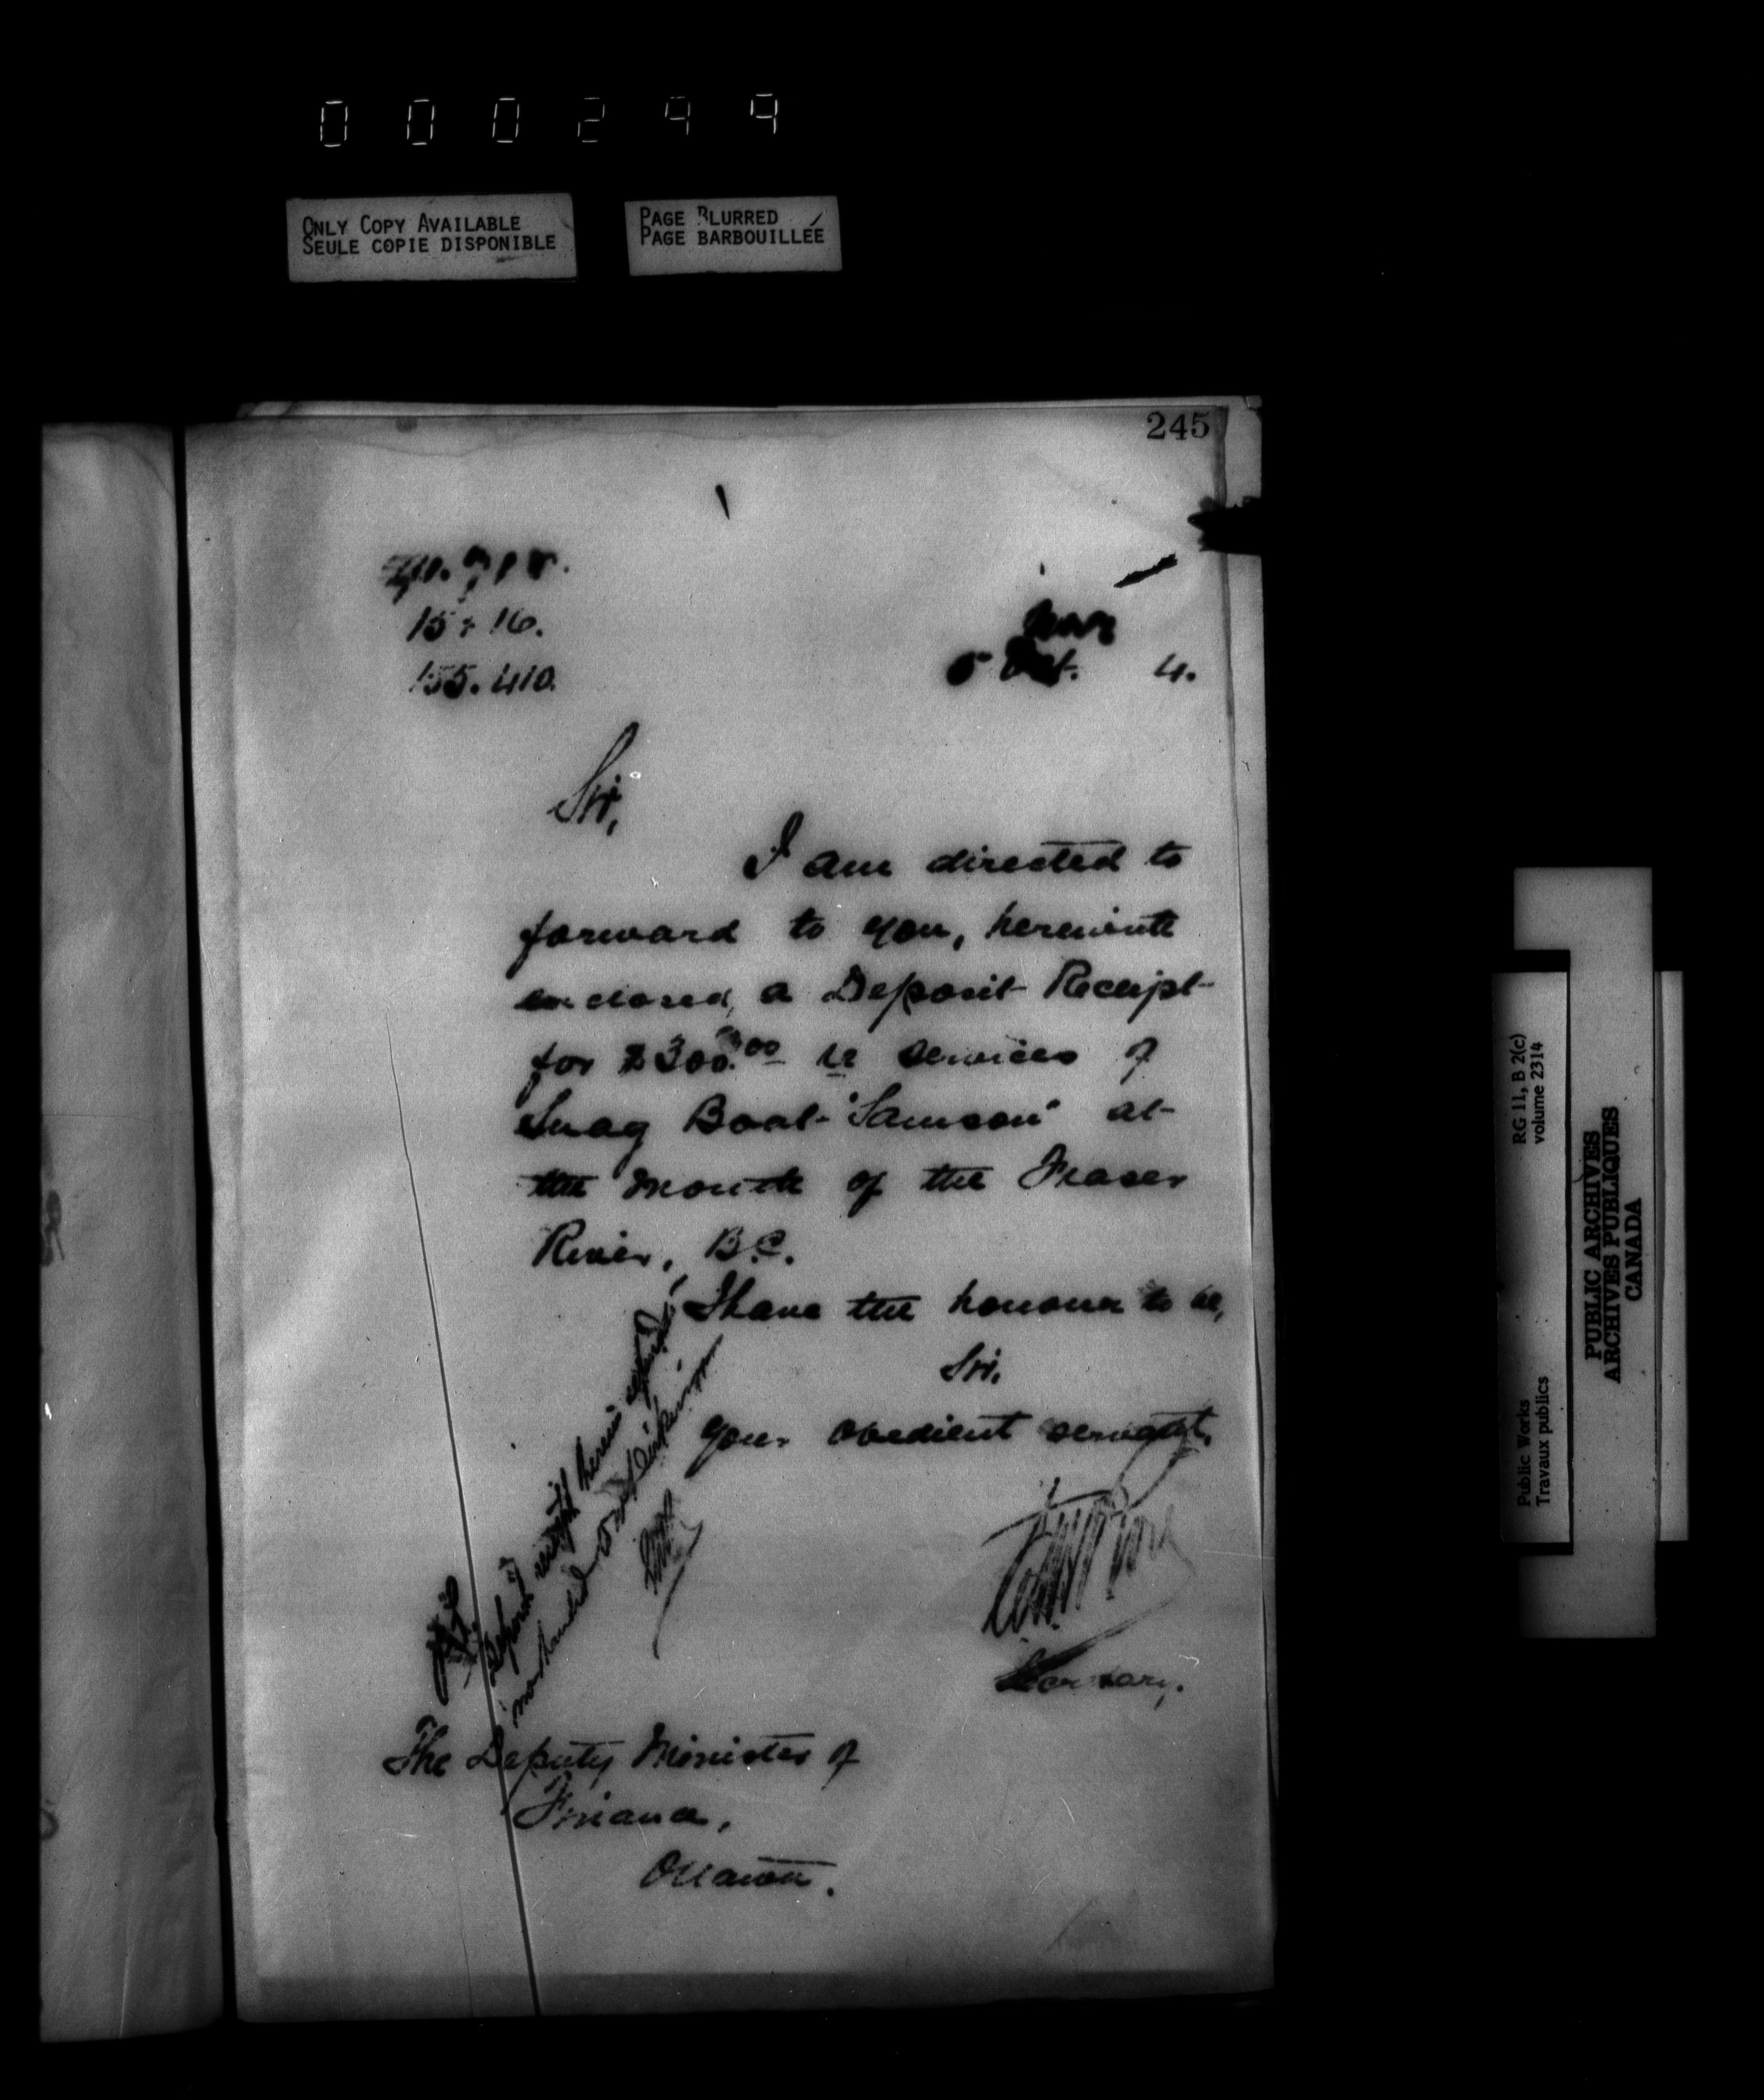 000299
ONLY COPY AVAILABLE
SEULE COPIE DISPONIBLE
PAGE BLURRED
PAGE BARBOUILLÉE
245
15 : 16.
155.410.
Nov
5 Oct. 4.
Sir,
I am directed to
forward to you, herewith
enclosed, a Deposit Receipt
for $300.00 re services of
Snag Boat "Samson" at
the mouth of the Fraser
River, B.C.
I have the honour to be,
Sir,
Your obedient servant,
Secretary.
Deposit receipt herein
handed to
The Deputy Minister of
Finance,
Ottawa.
RG 11, B 2(c)
volume 2314
Public Works
Travaux publics
PUBLIC ARCHIVES
ARCHIVES PUBLIQUES
CANADA